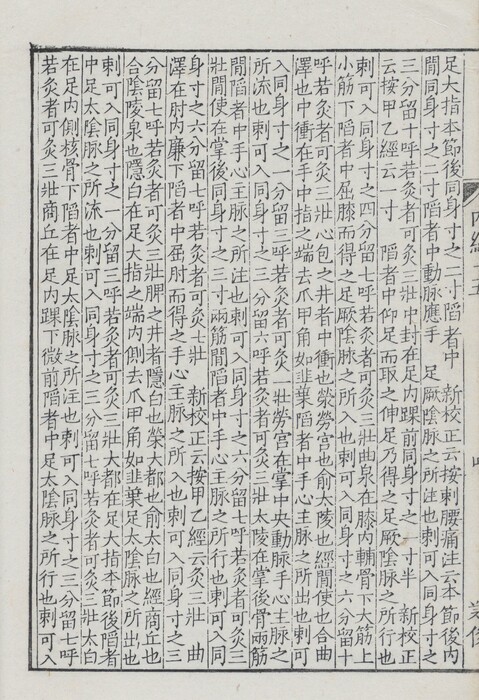 足大指本節後同身寸之二寸陷者中　新校正云按刺腰痛注云本節後內
間同身寸之二寸陷者中動脉應手　足厥陰脉之所注也刺可入同身寸之
三分留十呼若灸者可灸三壯中封在足內踝前同身寸之一寸半　新校正
云按甲乙經云一寸　陷者中仰足而取之伸足乃得之足厥陰脉之所行也
刺可入同身寸之四分留七呼若灸者可灸三壯曲泉在膝內輔骨下大筋上
小筋下陷者中屈膝而得之足厥陰脉之所入也刺可入同身寸之六分留十
呼若灸者可灸三壯心包之井者中衝也滎勞宮也俞太陵也經間使也合曲
澤也中衝在手中指之端去爪甲角如韭葉陷者中手心主脉之所出也刺可
入同身寸之一分留三呼若灸者可灸一壯勞宮在掌中央動脉手心主脉之
所流也刺可入同身寸之三分留六呼若灸者可灸三壯太陵在掌後骨兩筋
間陷者中手心主脉之所注也刺可入同身寸之六分留七呼若灸者可灸三
壯間使在掌後同身寸之三寸兩筋間陷者中手心主脉之所行也刺可入同
身寸之六分留七呼若灸者可灸七壯　新校正云按甲乙經云灸三壯　曲
澤在肘內廉下陷者中屈肘而得之手心主脉之所入也刺可入同身寸之三
分留七呼若灸者可灸三壯脾之井者隱白也滎大都也俞太白也經商丘也
合陰陵泉也隱白在足大指之端內側去爪甲角如韭葉足太陰脉之所出也
刺可入同身寸之一分留三呼若灸者可灸三壯大都在足大指本節後陷者
中足太陰脉之所流也刺可入同身寸之三分留七呼若灸者可灸三壯太白
在足內側核骨下陷者中足太陰脉之所注也刺可入同身寸之三分留七呼
若灸者可灸三壯商丘在足內踝下微前陷者中足太陰脉之所行也刺可入